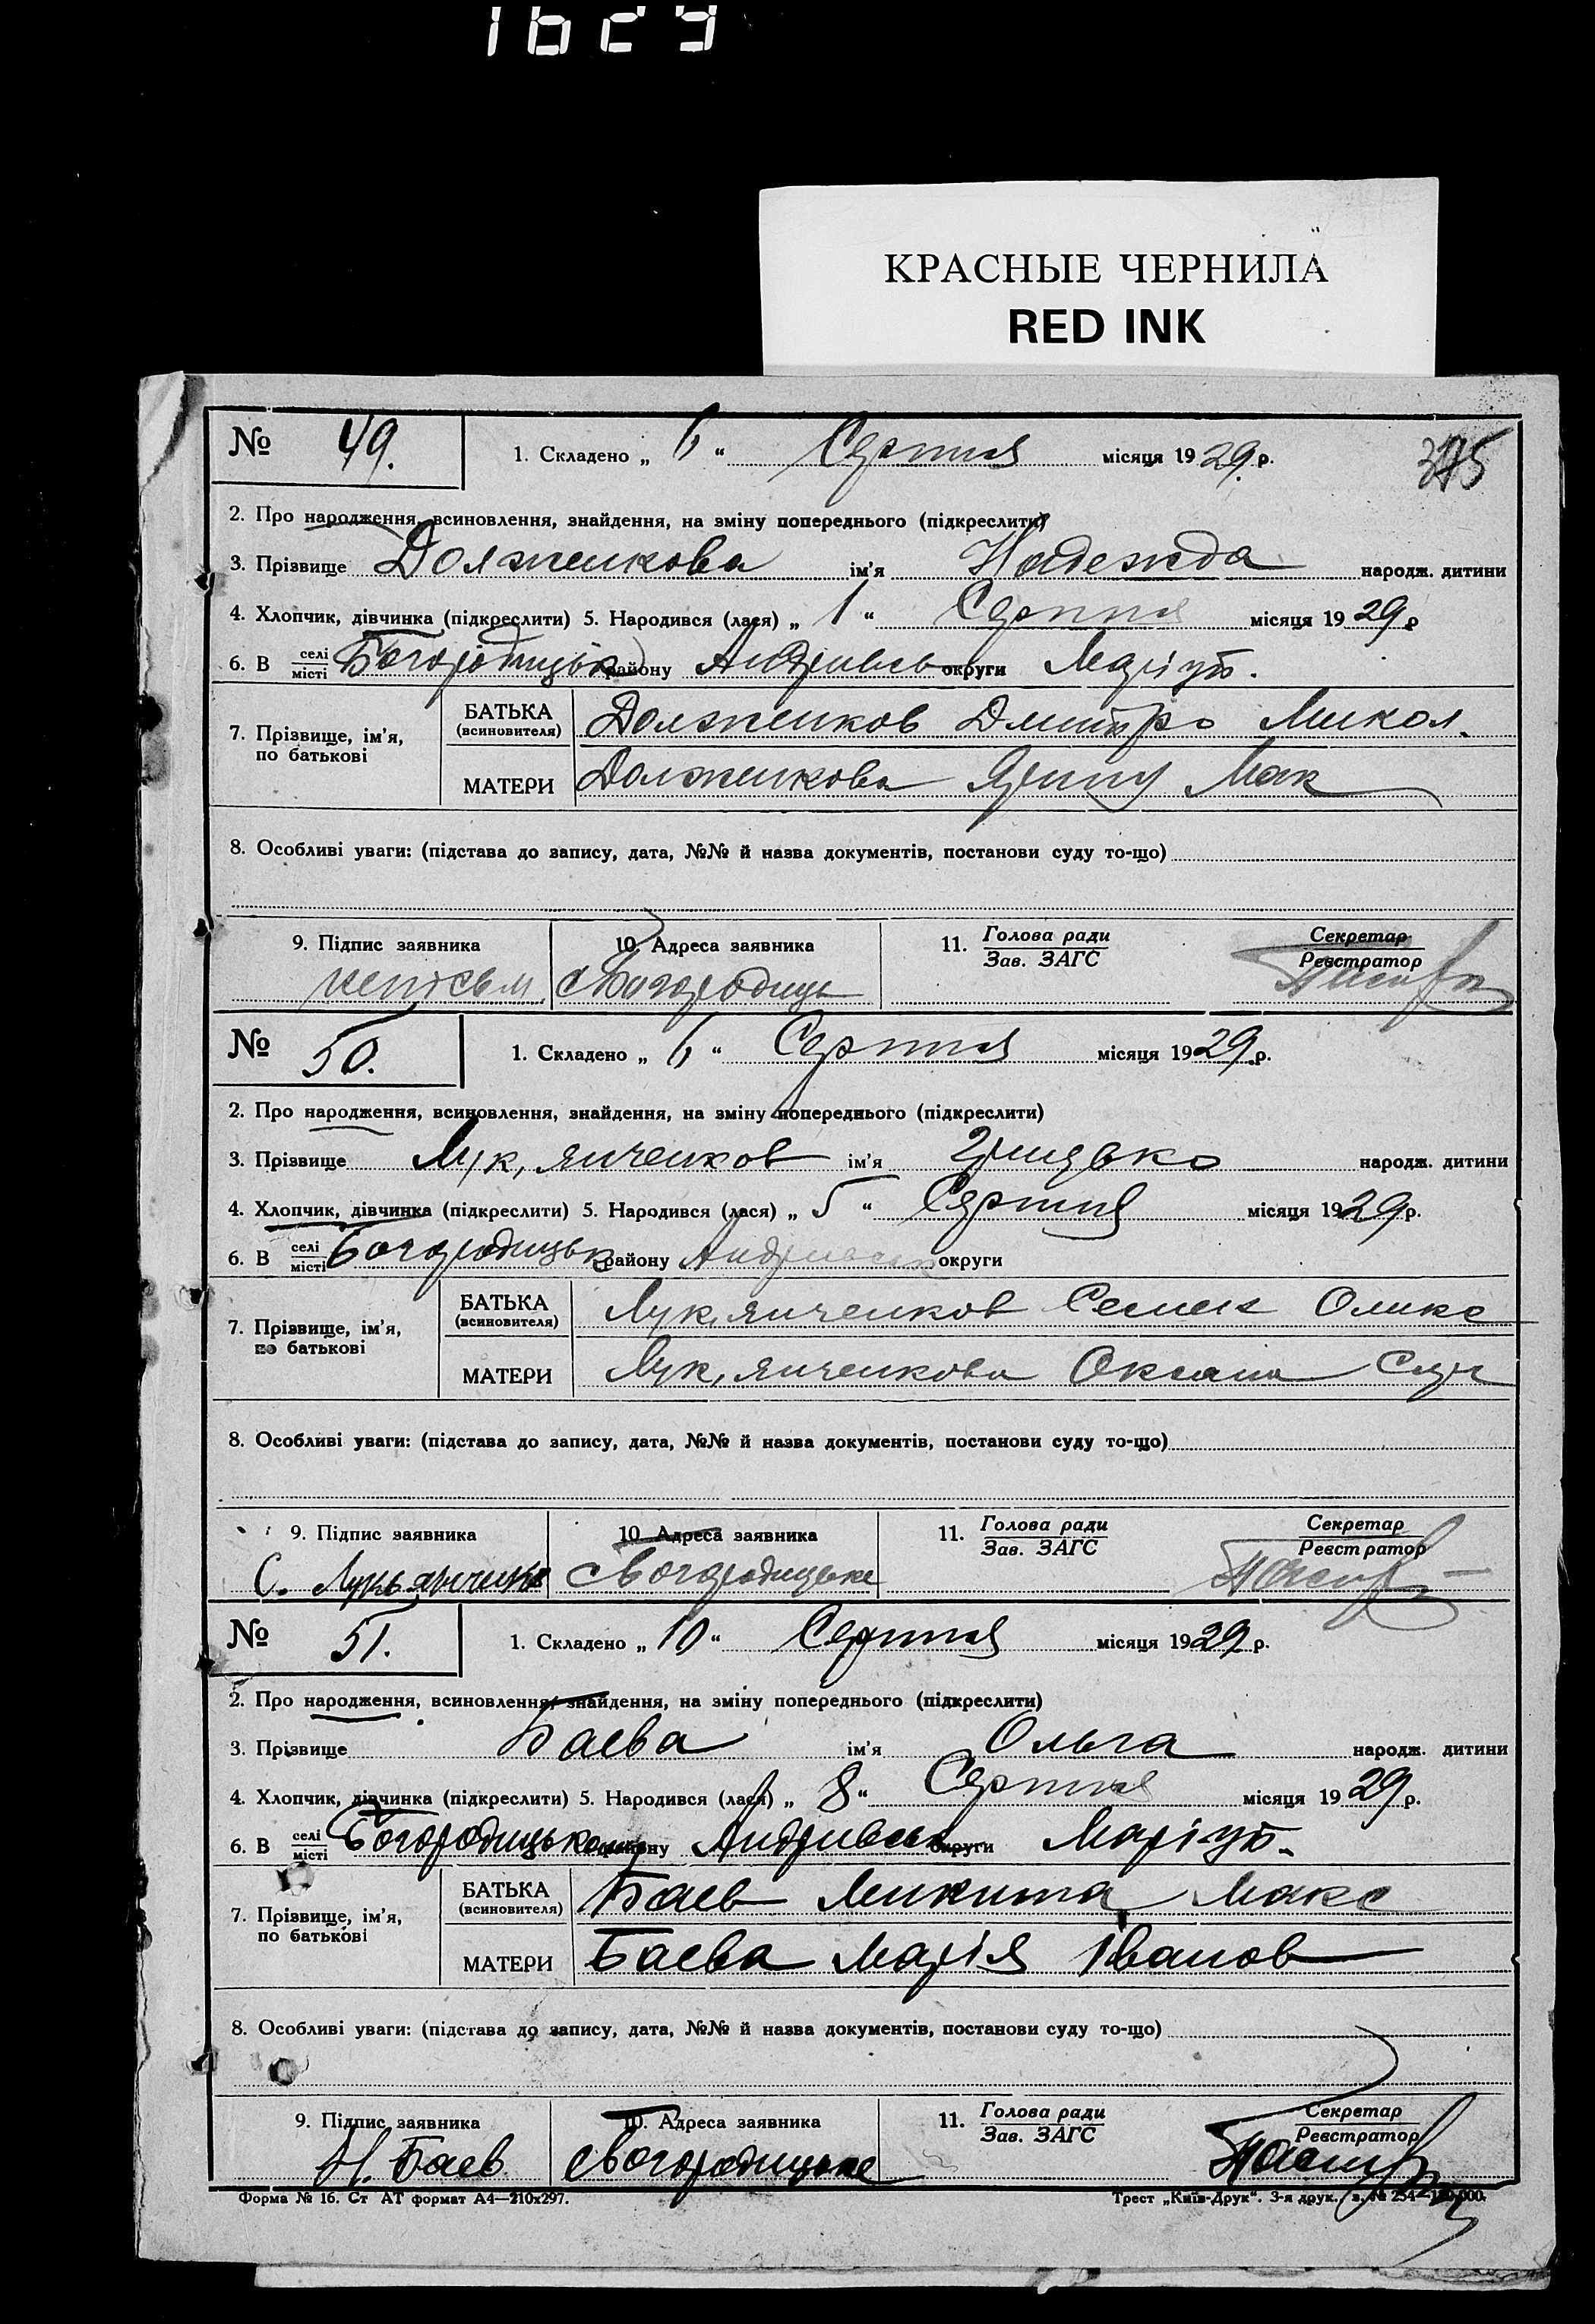 1629
КРАСНЫЕ ЧЕРНИЛА
RED INK
№ 49. 1. Складено „ 6 “ Серпня місяця 1929 р.
375
2. Про народження, всиновлення, знайдення, на зміну попереднього (підкреслити)
3. Прізвище Долженкова ім'я Надежда народж. дитини
4. Хлопчик, дівчинка (підкреслити) 5. Народився (лася) „ 1 “ Серпня місяця 1929 р
6. В селі/місті Богородицьк району Андривсь округи Маріуп.
7. Прізвище, ім'я, по батькові
БАТЬКА (всиновителя) Долженков Дмитро Микол.
МАТЕРИ Долженкова Мак
8. Особливі уваги: (підстава до запису, дата, №№ й назва документів, постанови суду то-що)
9. Підпис заявника 10. Адреса заявника 11. Голова ради / Зав. ЗАГС Секретар / Реєстратор
неписьм с Богородиць
№ 50. 1. Складено „ 6 “ Серпня місяця 1929 р.
2. Про народження, всиновлення, знайдення, на зміну попереднього (підкреслити)
3. Прізвище Лук,янченков ім'я Грицько народж. дитини
4. Хлопчик, дівчинка (підкреслити) 5. Народився (лася) „ 5 “ Серпня місяця 1929 р.
6. В селі/місті Богородицьк району Андривськ округи
7. Прізвище, ім'я, по батькові
БАТЬКА (всиновителя) Лук,янченков Семен Оликс
МАТЕРИ Лук,янченкова Оксана
8. Особливі уваги: (підстава до запису, дата, №№ й назва документів, постанови суду то-що)
9. Підпис заявника 10. Адреса заявника 11. Голова ради / Зав. ЗАГС Секретар / Реєстратор
С. Лукьянченко с Богородицьке
№ 51. 1. Складено „ 10 “ Серпня місяця 1929 р.
2. Про народження, всиновлення, знайдення, на зміну попереднього (підкреслити)
3. Прізвище Баева ім'я Ольга народж. дитини
4. Хлопчик, дівчинка (підкреслити) 5. Народився (лася) „ 8 “ Серпня місяця 1929 р.
6. В селі/місті Богородицьком району Андривськ округи Маріуп.
7. Прізвище, ім'я, по батькові
БАТЬКА (всиновителя) Баев Микита Макс
МАТЕРИ Баева Марія Іванов
8. Особливі уваги: (підстава до запису, дата, №№ й назва документів, постанови суду то-що)
9. Підпис заявника 10. Адреса заявника 11. Голова ради / Зав. ЗАГС Секретар / Реєстратор
Н. Баев с Богородицьке
Форма № 16. Ст АТ формат А4—210х297. Трест „Київ-Друк“. 3-я друк., з. № 254